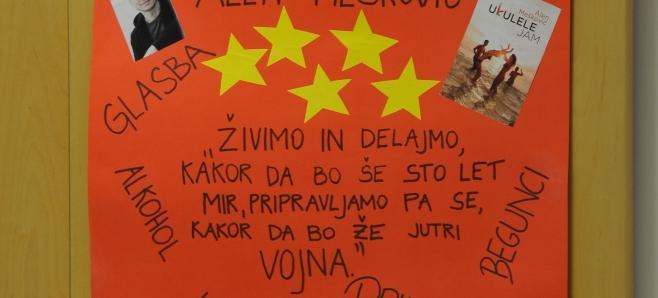 ALEN MEŠKOVIĆ
Alen
Mešković
UKULELE
JAM
GLASBA
„ŽIVIMO IN DELAJMO,
KAKOR DA BO ŠE STO LET
MIR, PRIPRAVLJAMO PA SE,
KAKOR DA BO ŽE JUTRI
VOJNA."
ALKOHOL
BEGUNCI